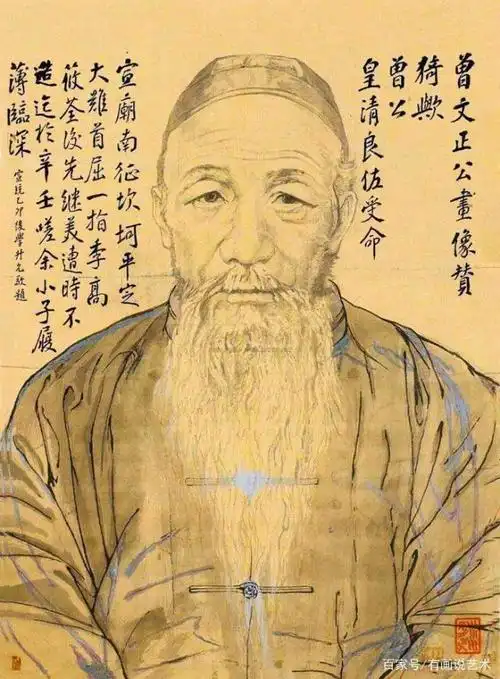 曾文正公畫像贊
猗歟
曾公
皇清良佐受命
宣廟南征坎坷平定
大難首屈一指李高
筱荃後先繼美遭時不
造迄於辛壬嗟余小子履
薄臨深
宣統乙卯後學升允敬題
百家号/有画说艺术